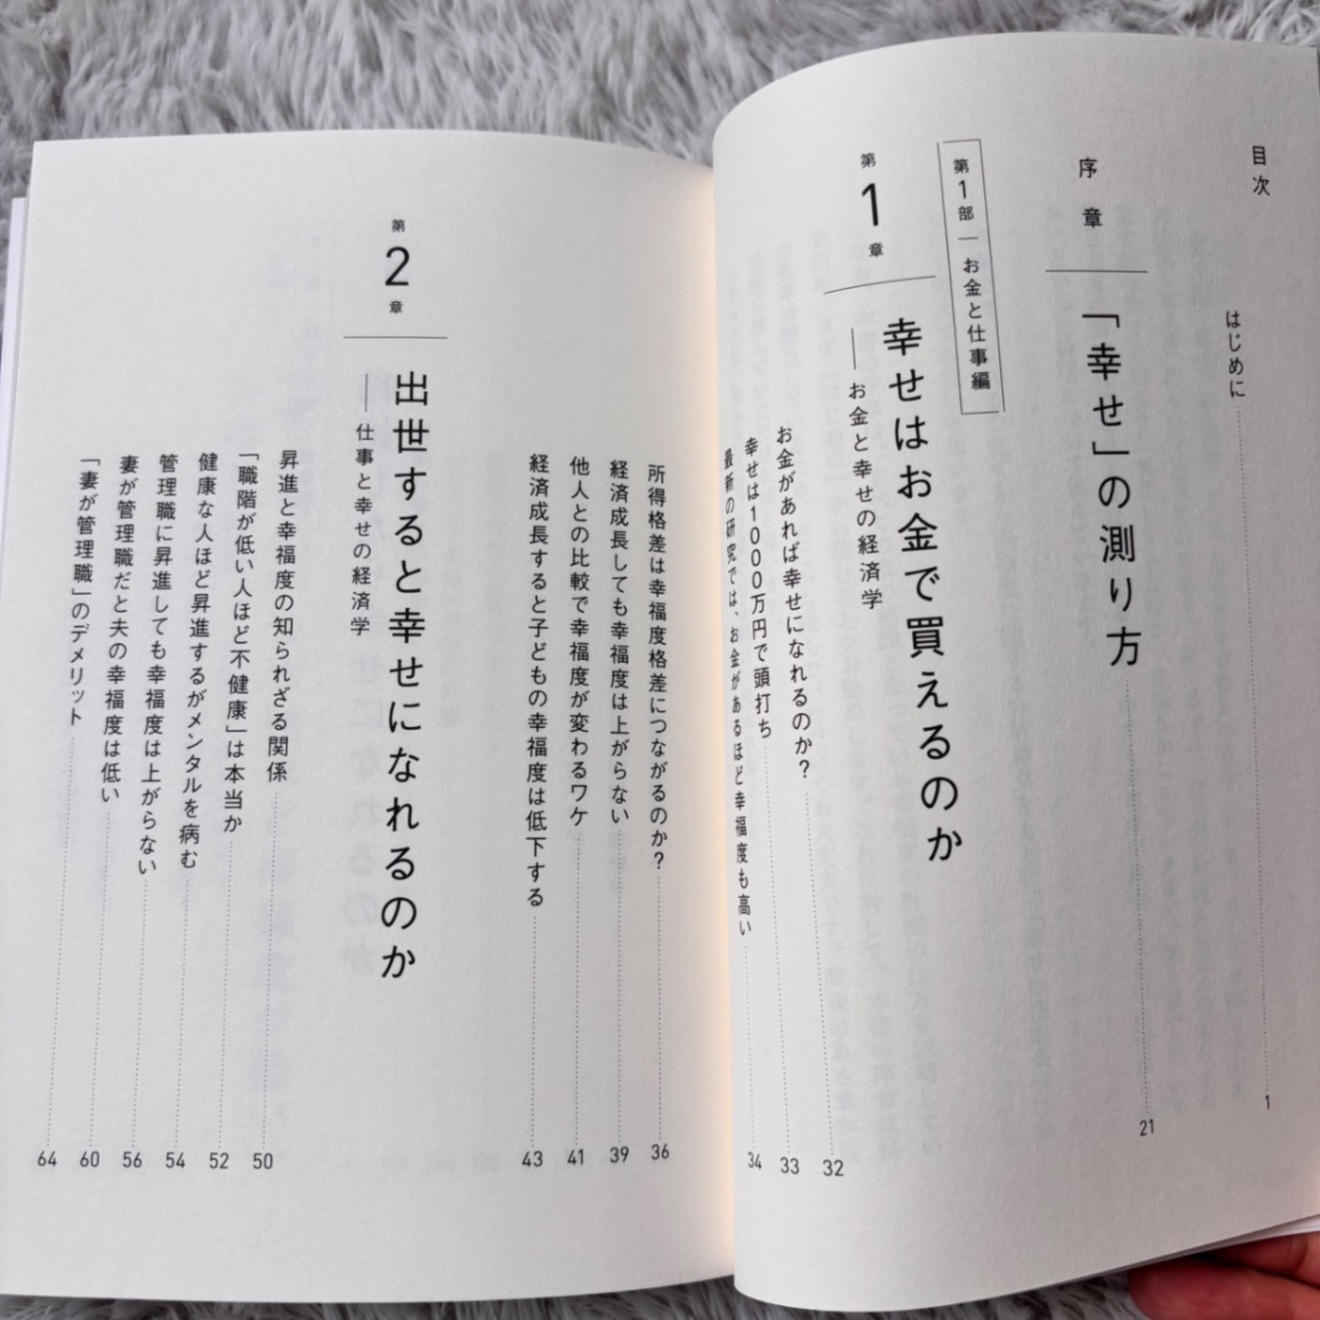 目次
はじめに 1
序章
「幸せ」の測り方 21
第1部 ― お金と仕事編
第1章
幸せはお金で買えるのか
――お金と幸せの経済学
お金があれば幸せになれるのか? 32
幸せは1000万円で頭打ち 33
最新の研究では、お金があるほど幸福度も高い 34
所得格差は幸福度格差につながるのか? 36
経済成長しても幸福度は上がらない 39
他人との比較で幸福度が変わるワケ 41
経済成長すると子どもの幸福度は低下する 43
第2章
出世すると幸せになれるのか
――仕事と幸せの経済学
昇進と幸福度の知られざる関係 50
「職階が低い人ほど不健康」は本当か 52
健康な人ほど昇進するがメンタルを病む 54
管理職に昇進しても幸福度は上がらない 56
妻が管理職だと夫の幸福度は低い 60
「妻が管理職」のデメリット 64